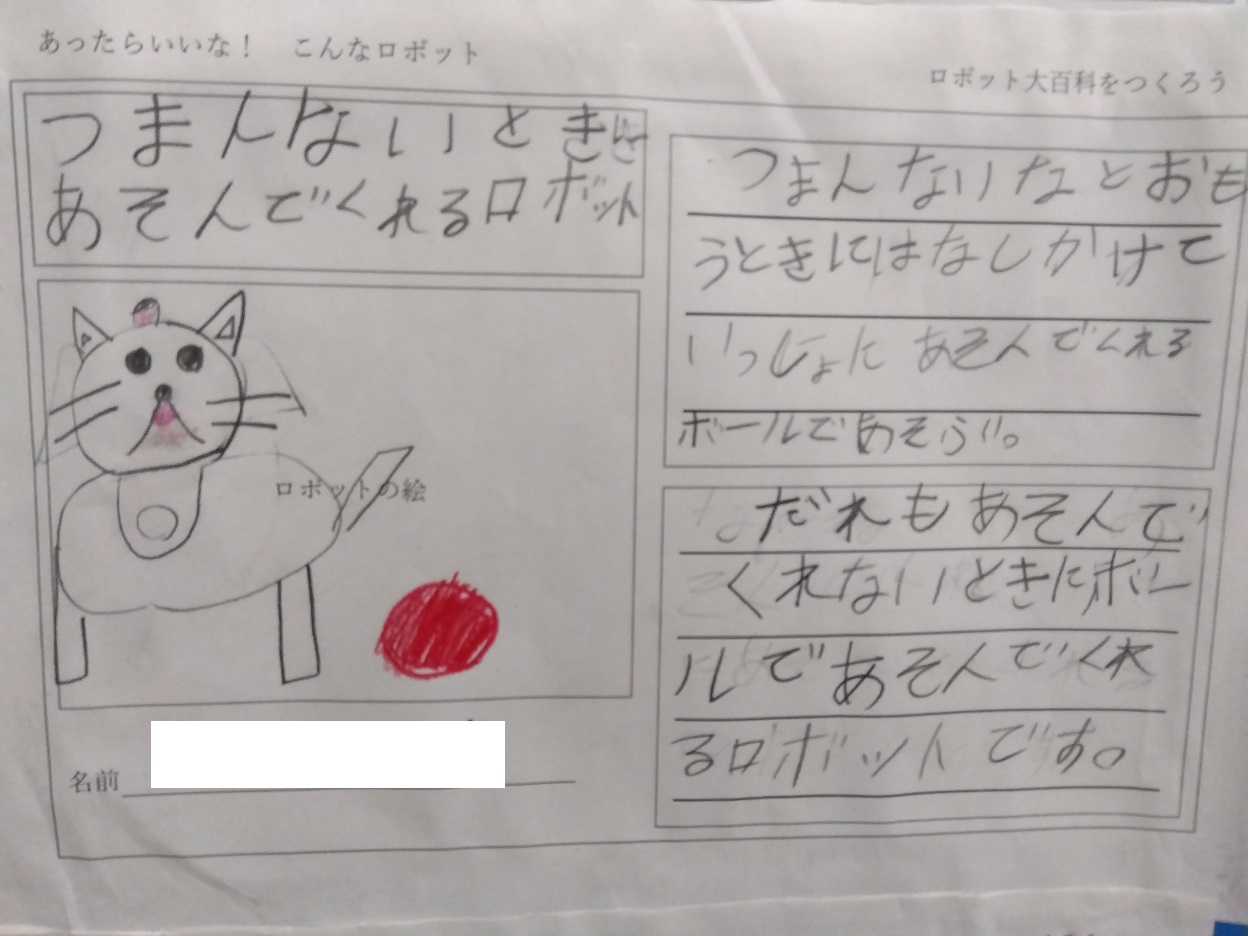 あったらいいな！　こんなロボット
ロボット大百科をつくろう
つまんないときに
あそんでくれるロボット
つまんないなとおも
うときにはなしかけて
いっしょにあそんでくれる
ボールであそぶ。
ロボットの絵
だれもあそんで
くれないときにボー
ルであそんでくれ
るロボットです。
名前